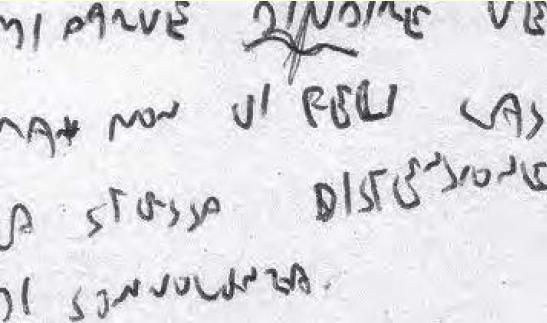 MI PARVE UDIRE VE
MA NON VI FECI CAS
A STESSA DISTENSIONE
DI SONNOLENZA.